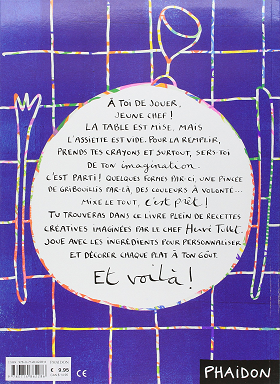 À TOI DE JOUER,
JEUNE CHEF !
LA TABLE EST MISE, MAIS
L'ASSIETTE EST VIDE. POUR LA REMPLIR,
PRENDS TES CRAYONS ET SURTOUT, SERS-TOI
DE TON imagination.
C'EST PARTI ! QUELQUES FORMES PAR-CI, UNE PINCÉE
DE GRIBOUILLIS PAR-LÀ, DES COULEURS À VOLONTÉ...
MIXE LE TOUT, c'est prêt !
TU TROUVERAS DANS CE LIVRE PLEIN DE RECETTES
CRÉATIVES IMAGINÉES PAR LE CHEF Hervé Tullet.
JOUE AVEC LES INGRÉDIENTS POUR PERSONNALISER
ET DÉCORER CHAQUE PLAT À TON GOÛT.
Et voilà !
€ 9.95
CE
PHAIDON